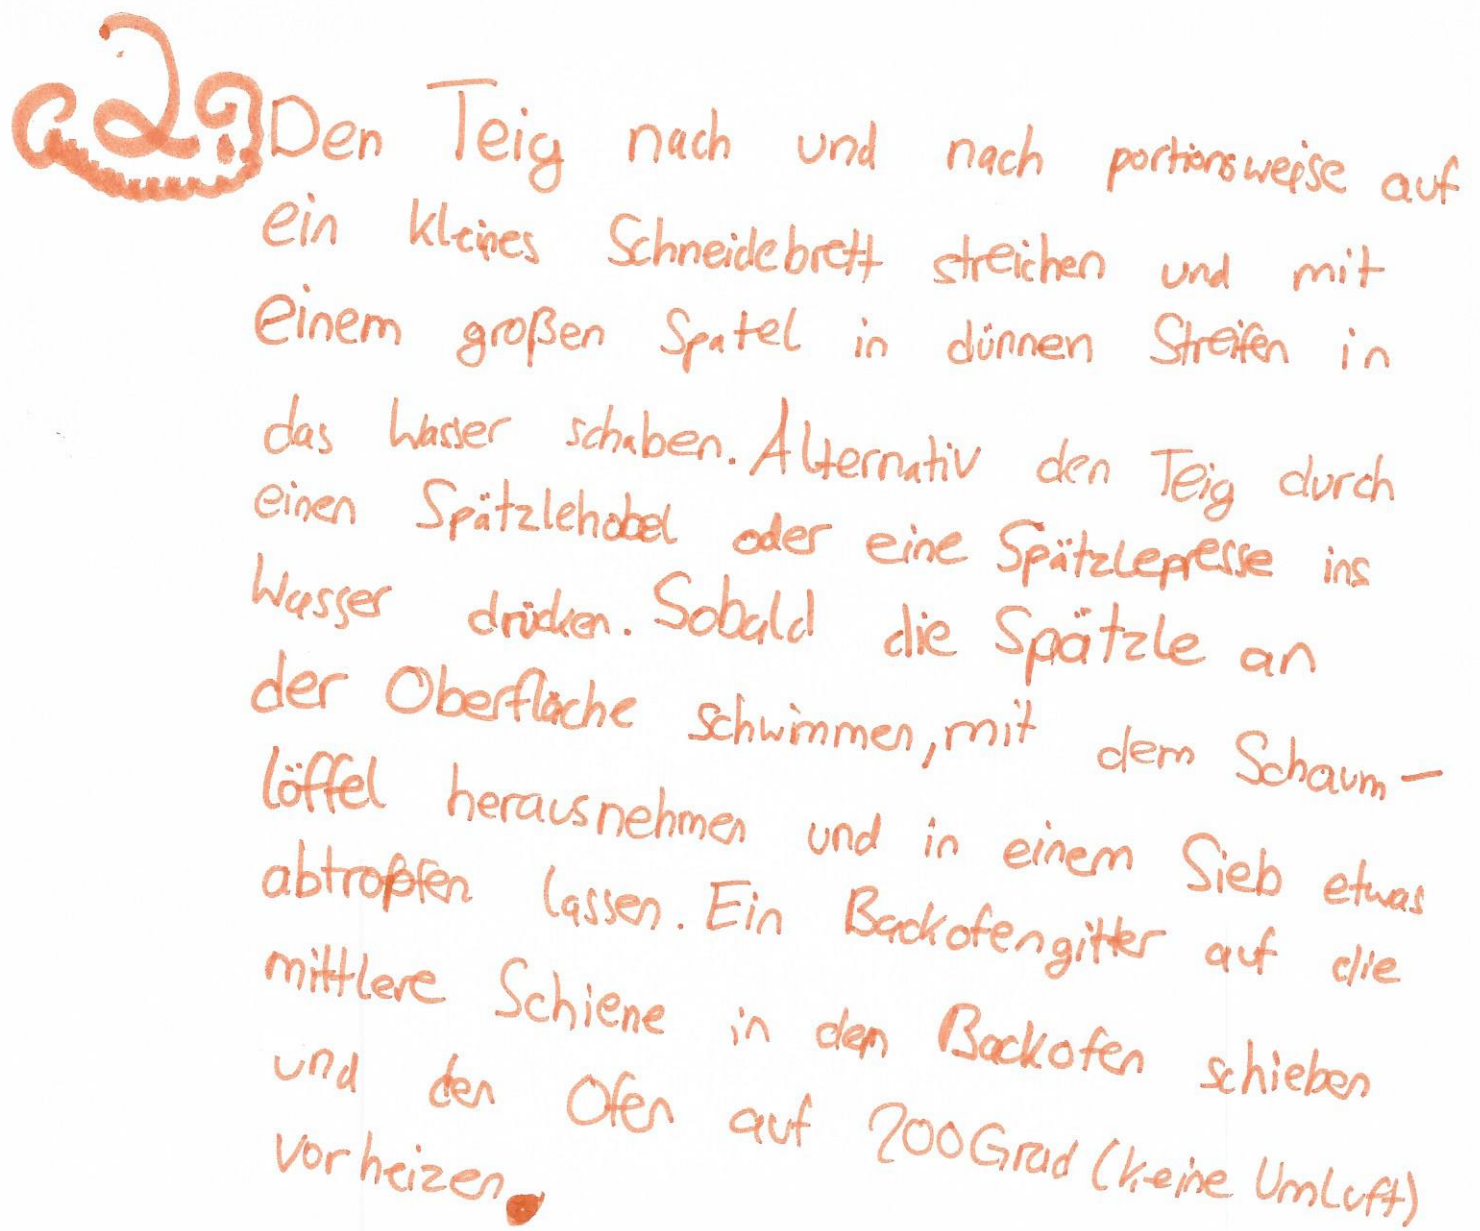 2. Den Teig nach und nach portionsweise auf
ein kleines Schneidebrett streichen und mit
einem großen Spatel in dünnen Streifen in
das Wasser schaben. Alternativ den Teig durch
einen Spätzlehobel oder eine Spätzlepresse ins
Wasser drücken. Sobald die Spätzle an
der Oberfläche schwimmen, mit dem Schaum-
löffel herausnehmen und in einem Sieb etwas
abtropfen lassen. Ein Backofengitter auf die
mittlere Schiene in den Backofen schieben
und den Ofen auf 200 Grad (keine Umluft)
vorheizen.